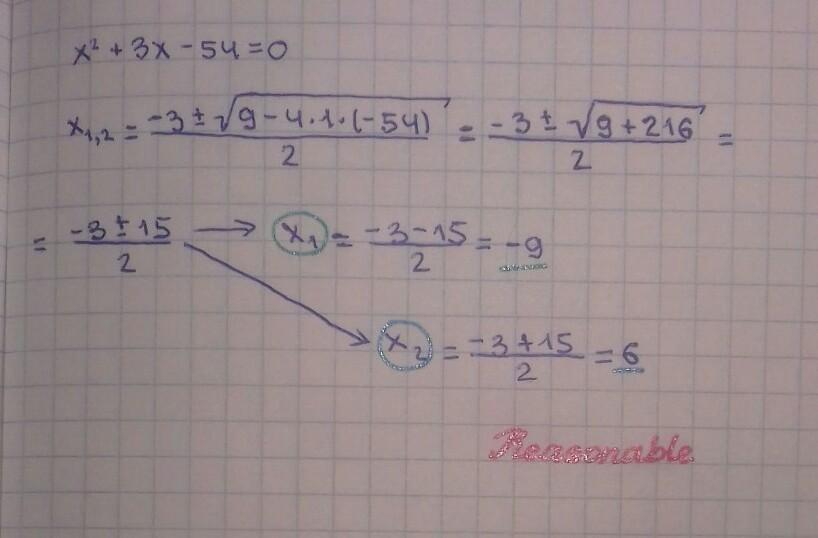 x² + 3x - 54 = 0
x₁,₂ = (-3 ± √(9 - 4·1·(-54)))/2 = (-3 ± √(9 + 216))/2 =
= (-3 ± 15)/2 → x₁ = (-3 - 15)/2 = -9
x₂ = (-3 + 15)/2 = 6
Reasonable